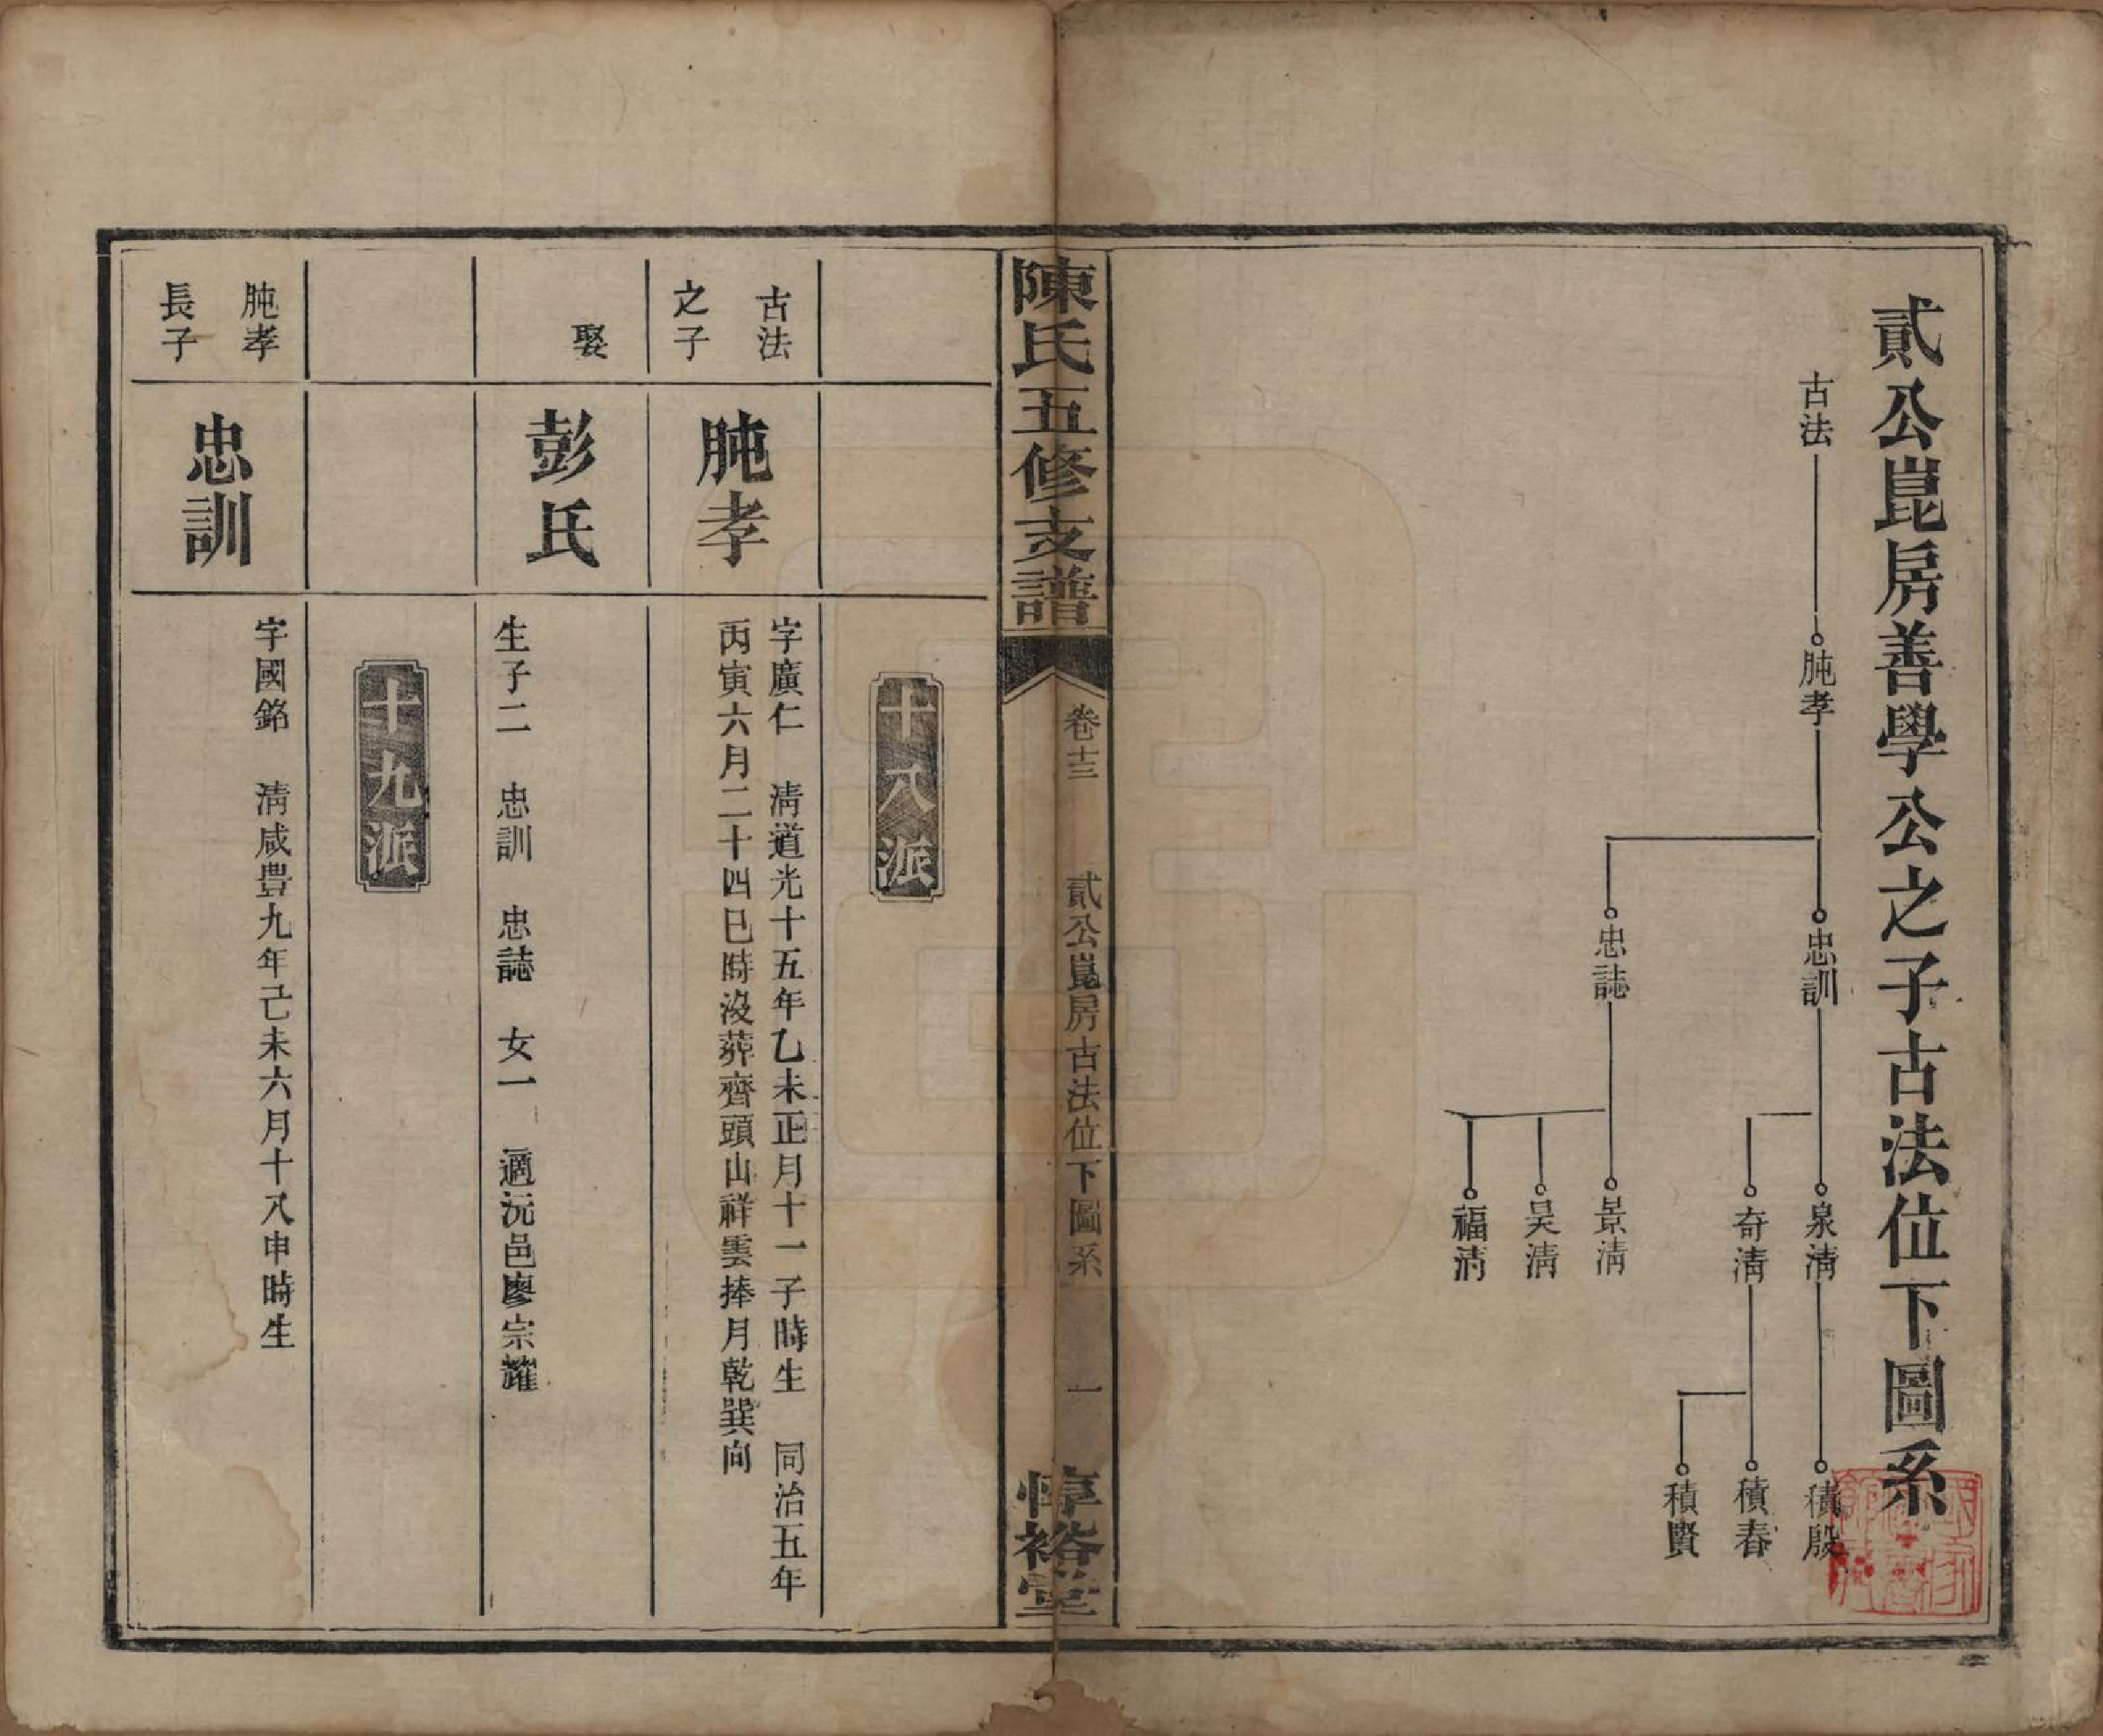 貳公崑房善學公之子古法位下圖系
古法
肫孝
忠訓
忠誌
泉清
奇清
景清
昊清
福清
積殷
積春
積賢
陳氏五修支譜
卷十三
貳公崑房古法位下圖系
一
惇裕堂
十八派
古法
之子
肫孝
字廣仁 清道光十五年乙未正月十一子時生 同治五年
丙寅六月二十四巳時沒葬齊頭山祥雲捧月乾巽向
娶
彭氏
生子二 忠訓 忠誌 女一 適沅邑廖宗耀
十九派
肫孝
長子
忠訓
字國銘 清咸豐九年己未六月十八申時生